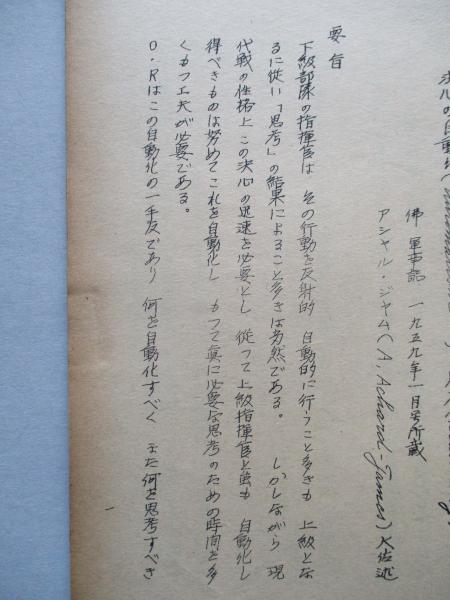 決心の自動化(
佛 軍事誌 一九五九年一月号所蔵
アシャル・ジャム(A, Achard-James)大佐述
要旨
下級部隊の指揮官は その行動を反射的 自動的に行うこと多きも 上級とな
るに従い「思考」の結果によること多きは当然である。 しかしながら 現
代戦の性格上 この決心の迅速を必要とし 従つて上級指揮官と雖も 自動化し
得べきものは努めてこれを自動化し もつて真に必要な思考のための時間を多
くもつ工夫が必要である。
O・Rはこの自動化の一手段であり 何を自動化すべく また何を思考すべき